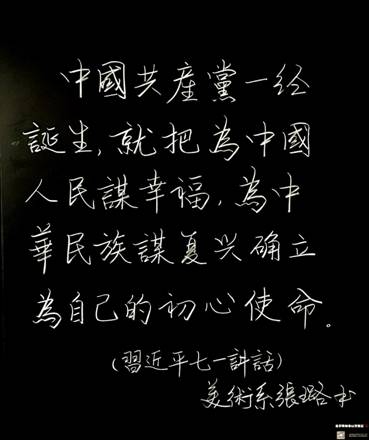 中國共產黨一经
誕生,就把為中國
人民謀幸福,為中
華民族謀复兴确立
為自己的初心使命。
(習近平七一講話)
美術系張璐书